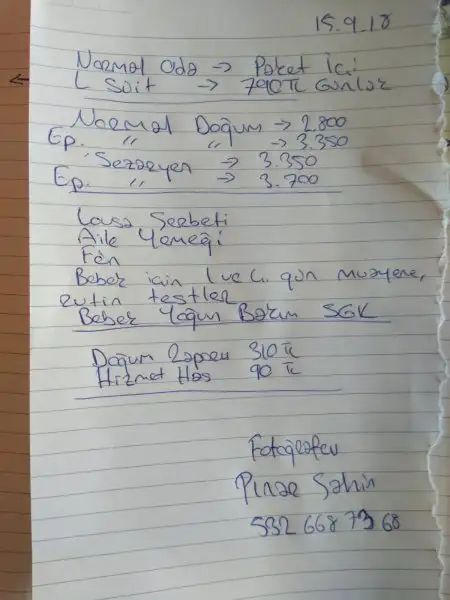 15.9.18
Normal Oda → Paket İçi
L Süit → 790 TL Günlük
Normal Doğum → 2.800
Ep. " " → 3.350
Sezaryen → 3.350
Ep. " → 3.700
Lousa Şerbeti
Aile Yemeği
Fön
Bebek için 1 ve 6. gün muayene,
rutin testler
Bebek Yoğun Bakım SGK
Doğum Raporu 310 TL
Hizmet Has 90 TL
Fotoğrafçı
Pınar Şahin
532 668 73 68